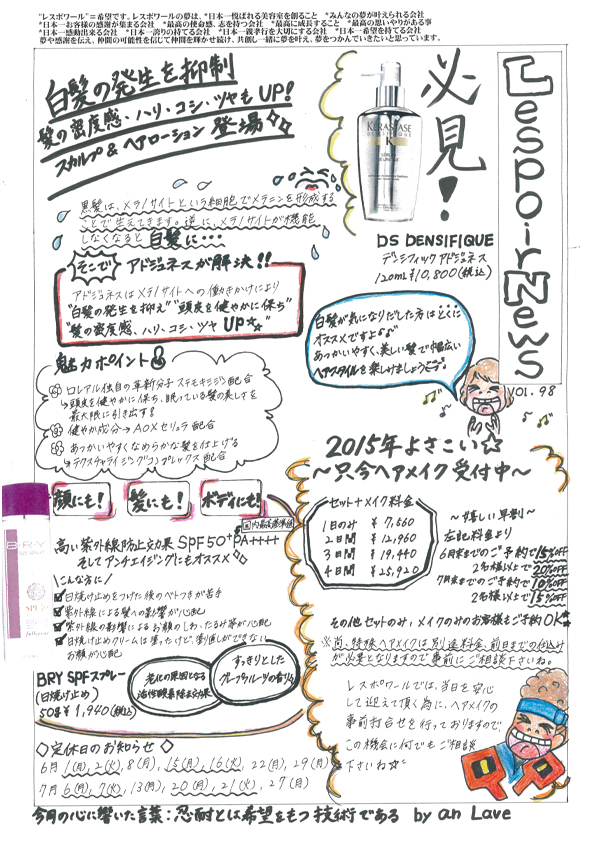 "レスポワール"＝希望です。レスポワールの夢は、*日本一悦ばれる美容室を創ること *みんなの夢が叶えられる会社
*日本一お客様の感謝が集まる会社 *最高の使命感、志を持つ会社 *最高に成長すること *最高の思いやりがある事
*日本一感動出来る会社 *日本一誇りの持てる会社 *日本一親孝行を大切にする会社 *日本一希望を持てる会社
夢や感謝を伝え、仲間の可能性を信じて仲間を輝かせ続け、共創し一緒に夢を叶え、夢をつかんでいきたいと思っています。
白髪の発生を抑制
髪の密度感・ハリ・コシ・ツヤもUP!
スカルプ&ヘアローション 登場
必見!
Lespoir News
VOl.98
KERASTASE
DENSIFIQUE
K
黒髪は、メラノサイトという細胞でメラニンを形成する
ことで生えてきます。逆に、メラノサイトが機能
しなくなると白髪に…
そこで アドジュネスが解決!!
アドジュネスはメラノサイトへの働きかけにより
"白髪の発生を抑え" "頭皮を健やかに保ち"
"髪の密度感、ハリ・コシ・ツヤUP☆"
DS DENSIFIQUE
デンシフィック アドジュネス
120ml ¥10,800(税込)
白髪が気になりだした方はとくに
オススメですよ♪
あつかいやすく、美しい髪で幅広い
ヘアスタイルを楽しみましょう
魅力ポイント
ロレアル独自の革新分子 ステモキジン配合
↳頭皮を健やかに保ち、眠っている髪の美しさを
最大限に引き出す!
健やか成分→AOXセリュラ配合
あつかいやすくなめらかな髪を仕上げる
→テクスチャライジングコンプレックス配合
顔にも! 髪にも! ボディにも!
国内最高基準値
高い紫外線防止効果 SPF50+PA++++
そして アンチエイジングにもオススメ
\こんな方に/
日焼け止めをつけた後のベトつきが苦手
紫外線による髪への影響が心配
紫外線の影響によるお顔のしわ・たるみ等が心配
日焼け止めクリームは塗ったけど、塗り直しができない
お顔が心配
BRY
BRY SPFスプレー
(日焼け止め)
50g ¥1,940(税込)
老化の原因となる
活性酸素除去効果
すっきりとした
グレープフルーツの香り
2015年よさこい☆
〜只今ヘアメイク受付中〜
セット+メイク料金
1日のみ ¥7,560
2日間 ¥12,960
3日間 ¥19,440
4日間 ¥25,920
〜嬉しい早割〜
左記料金より
6月末までのご予約で15%OFF
2名様以上で20%OFF
7月末までのご予約で10%OFF
2名様以上で15%OFF
その他セットのみ、メイクのみのお客様もご予約OK
※尚、特殊ヘアメイクは別途料金、前日までの仕込み
が必要となりますので事前にご相談下さいね。
レスポワールでは、当日を安心
して迎えて頂く為に、ヘアメイクの
事前打合せを行っておりますので、
この機会に何でもご相談
下さいね☆
◇定休日のお知らせ◇
6月 1(月)、2(火)、8(月)、15(月)、16(火)、22(月)、29(月)
7月 6(月)、7(火)、13(月)、20(月)、21(火)、27(月)
今月の心に響いた言葉:忍耐とは希望をもつ技術である by an Lave